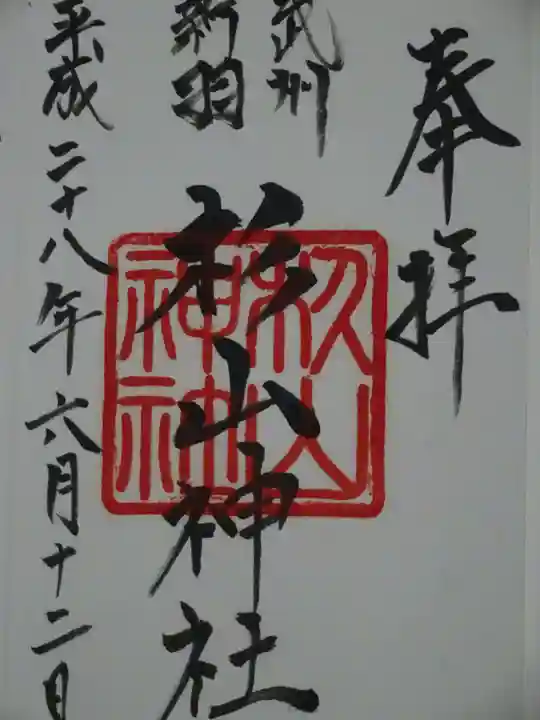 奉拝
武州
新羽
杉山神社
平成二十八年六月十二日